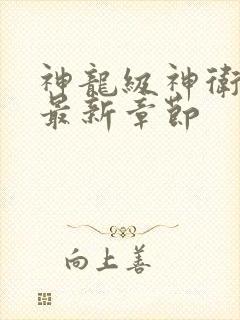 神龍級神衛
最新章節
向上善